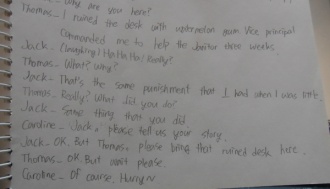 why are you here?
Thomas- I ruined the desk with watermelon gum. Vice principal
commanded me to help the Janitor three weeks
Jack- (laughing) Ha Ha Ha! Really?
Thomas- What? Why?
Jack- That's the same punishment that I had when I was little.
Thomas- Really? What did you do?
Jack- Same thing that you did
Caroline- Jack, please tell us your story.
Jack- OK. But Thomas, please bring that ruined desk here.
Thomas- OK. But wait please.
Caroline- Of course. Hurry